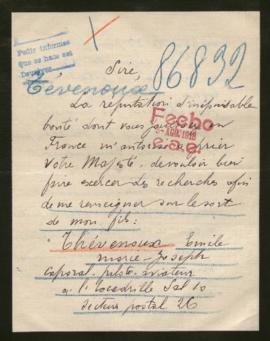 Feliz informes
que se hane sei
Sire,
86832
Tévenoux
La réputation d'inépuisable
bonté dont vous jouissez en
France m'autorise à prier
Votre Majesté, de vouloir bien
faire exercer des recherches afin
de me renseigner sur le sort
de mon fils:
Fecho
AGO. 1918
e.s.e.
Thévenoux Emile
Joseph
caporal pilote Aviateur
à l'Escadrille Sal 10
Secteur postal 26